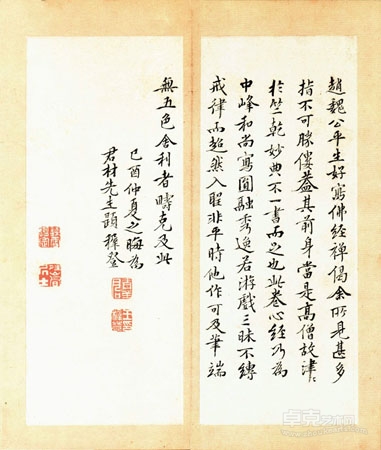 趙魏公平生好寫佛經禪偈余所見甚多
指不可勝僂蓋其前身當是高僧故津〻
於竺乾妙典不一書而足也此卷心經乃為
中峰和尚寫圓融秀逸若游戲三昧不縛
戒律而超然入聖非平時他作可及筆端
無五色舍利者疇克及此
己酉仲夏之晦為
君材先生題穉登
卓克艺术网